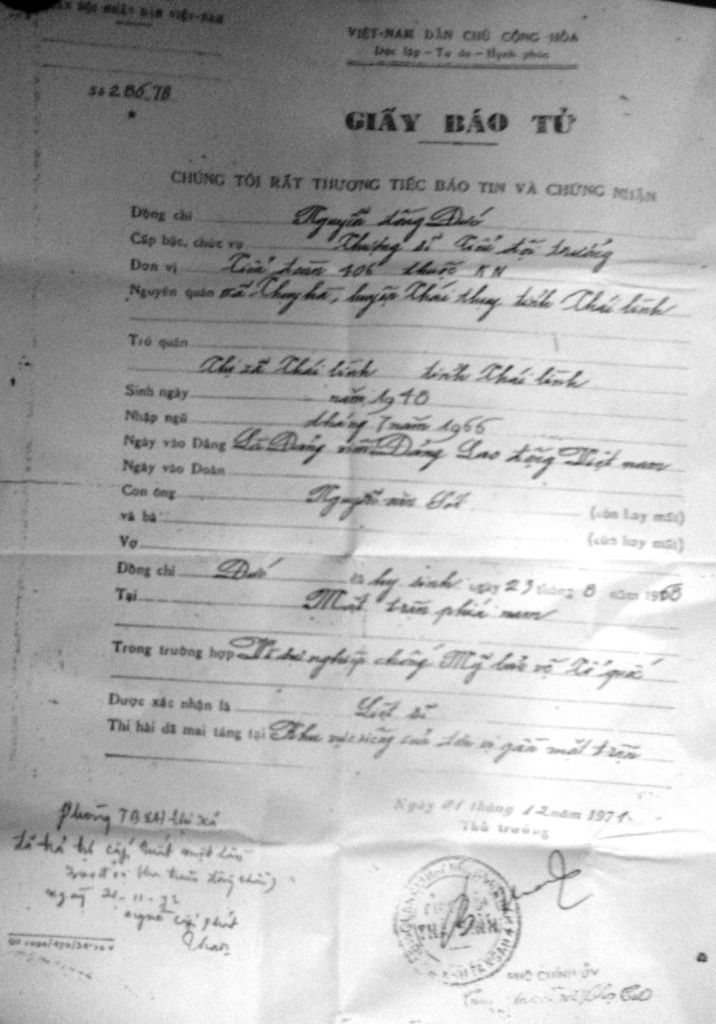 QUÂN ĐỘI NHÂN DÂN VIỆT-NAM
VIỆT-NAM DÂN CHỦ CỘNG HÒA
Độc lập - Tự do - Hạnh phúc
Số 256 TB
GIẤY BÁO TỬ
CHÚNG TÔI RẤT THƯƠNG TIẾC BÁO TIN VÀ CHỨNG NHẬN
Đồng chí Nguyễn Công
Cấp bậc, chức vụ Thượng sĩ Tiểu đội trưởng
Đơn vị Tiểu đoàn 406 thuộc KN
Nguyên quán xã Thụy hà, huyện Thái thụy tỉnh Thái bình
Trú quán
Thị xã Thái bình tỉnh Thái bình
Sinh ngày năm 1940
Nhập ngũ tháng 7 năm 1966
Ngày vào Đảng Là Đảng viên Đảng Lao động Việt nam
Ngày vào Đoàn
Con ông Nguyễn văn (còn hay mất)
và bà (còn hay mất)
Vợ
Đồng chí đã hy sinh ngày 23 tháng 8 năm 1968
Tại Mặt trận phía nam
Trong trường hợp Vì sự nghiệp chống Mỹ bảo vệ Tổ quốc
Được xác nhận là Liệt sĩ
Thi hài đã mai táng tại Khu vực riêng của đơn vị gần mặt trận
Ngày 01 tháng 12 năm 1971
Thủ trưởng
Phòng TBXH thị xã
đã trả trợ cấp một lần
ngày 21-11-72
người cấp phát
PHÓ CHÍNH ỦY